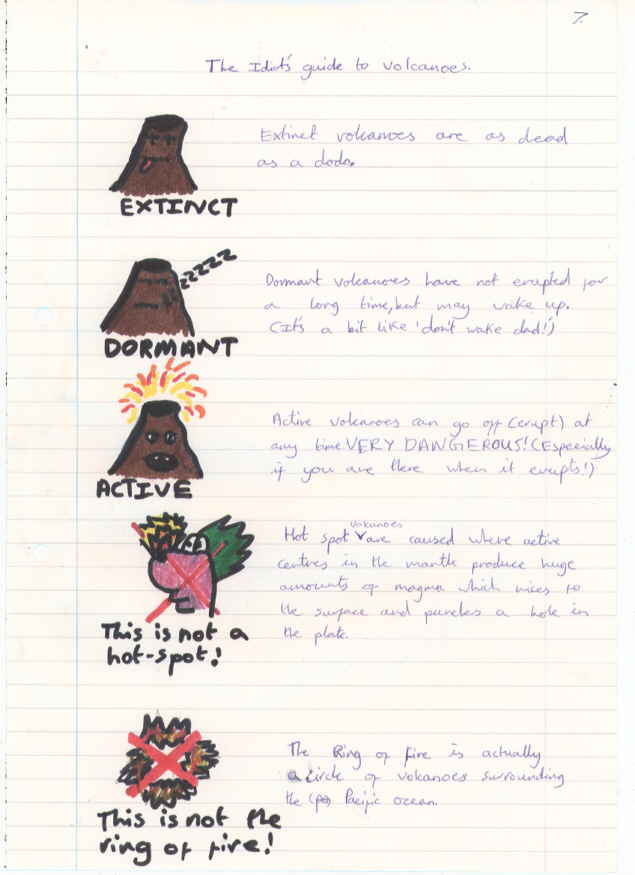 7.
The Idiot's guide to volcanoes.
Extinct volcanoes are as dead
as a dodo.
EXTINCT
zzzzz
Dormant volcanoes have not erupted for
a long time, but may wake up.
(It's a bit like 'don't wake dad!')
DORMANT
Active volcanoes can go off (erupt) at
any time VERY DANGEROUS! (Especially
if you are there when it erupts!)
ACTIVE
Hot spot volcanoes are caused where active
centres in the mantle produce huge
amounts of magma which rises to
the surface and punches a hole in
the plate.
This is not a
hot-spot!
The Ring of fire is actually
a circle of volcanoes surrounding
the Pacific ocean.
This is not the
ring of fire!